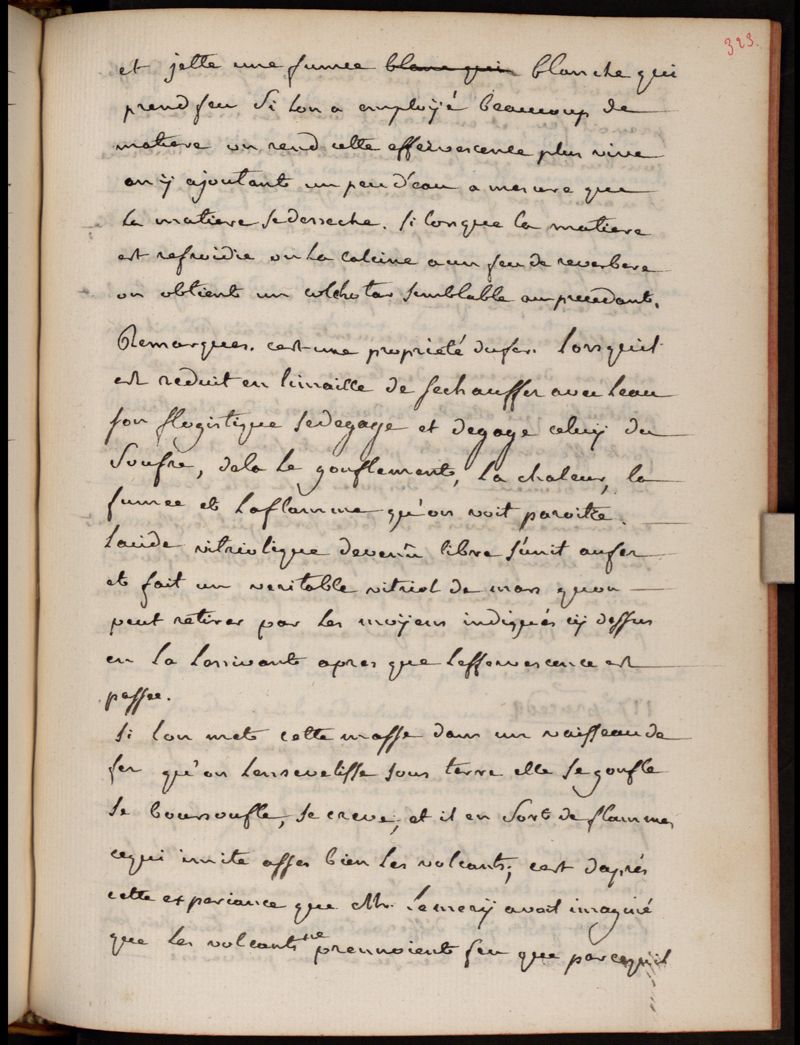 323.
et jette une fumee blanc qui blanche qui
prend feu Si lon a employé beaucoup de
matiere on rend cette effervescence plus vive
en y ajoutant un peu d'eau a mesure que
la matiere se desseche. Si lorsque la matiere
est refroidie on la calcine a un feu de reverbere
on obtient un colchotar semblable au precedant.
Remarques. cest une propriété du fer. lorsquil
est reduit en limaille de sechauffer avec leau
son flogistique se degage et degage celuy du
Soufre, dela le gonflement, la chaleur, la
fumee et la flamme qu'on voit paroitre.
lacide vitriolique devenu libre s'unit au fer
et fait un veritable vitriol de mars quon
peut retirer par les moyens indiqués cy dessus
en la lessivant apres que leffervescence est
passée.
Si lon met cette masse dans un vaisseau de
fer qu'on lensevelisse sous terre elle se gonfle
se boursoufle, se creve, et il en sort de flammes
cequi imite assez bien les volcants; cest daprés
cette experiance que Mr. lemery avoit imaginé
que les volcants ne prennoient feu que parcequil